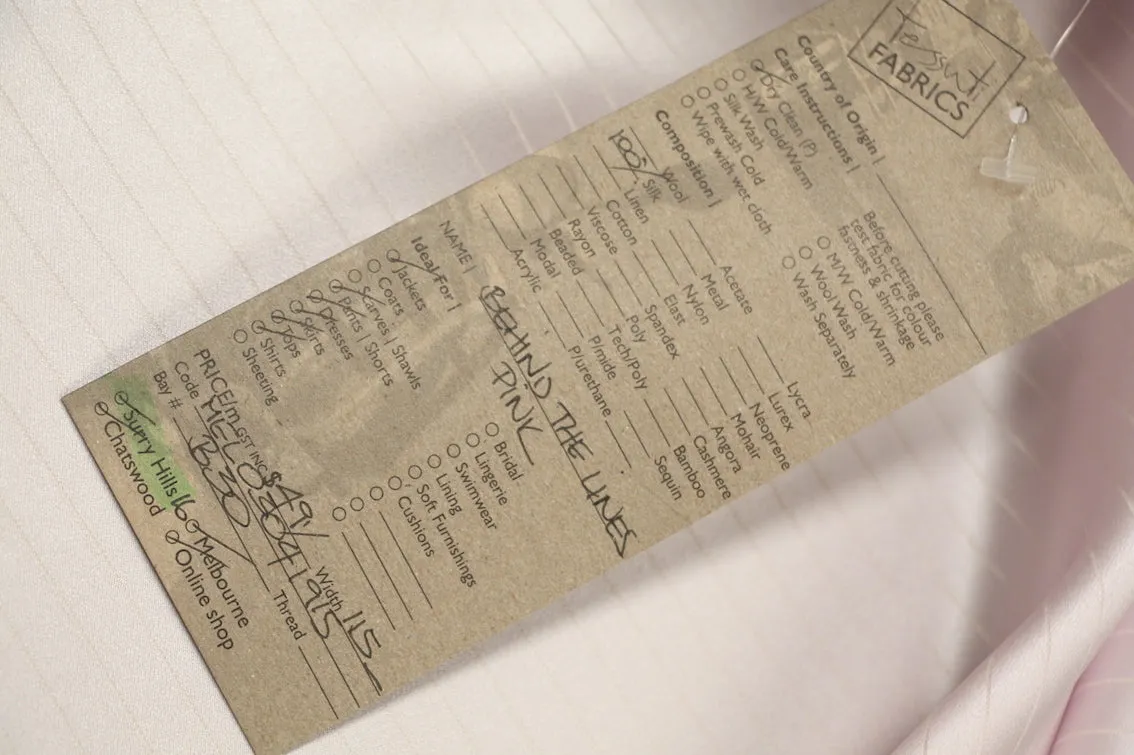 Tessuti
FABRICS
Country of Origin |
Care Instructions |
Dry Clean (P)
H/W Cold/Warm
Silk Wash
Prewash Cold
Wipe with wet cloth
Before cutting please
test fabric for colour
fastness & shrinkage
M/W Cold/Warm
Wool Wash
Wash Separately
Composition |
Wool
100% Silk
Linen
Cotton
Viscose
Rayon
Beaded
Modal
Acrylic
Acetate
Metal
Nylon
Elast
Spandex
Poly
Tech/Poly
P/mide
P/urethane
Lycra
Lurex
Neoprene
Mohair
Angora
Cashmere
Bamboo
Sequin
NAME | BEHIND THE LINES
PINK
Ideal For |
Jackets
Coats
Scarves | Shawls
Pants | Shorts
Dresses
Skirts
Tops
Shirts
Sheeting
Bridal
Lingerie
Swimwear
Lining
Soft Furnishings
Cushions
PRICE/m GST INC $49/ Width 115
Code
Bay # B30 Thread
Surry Hills 16 Melbourne
Chatswood Online shop